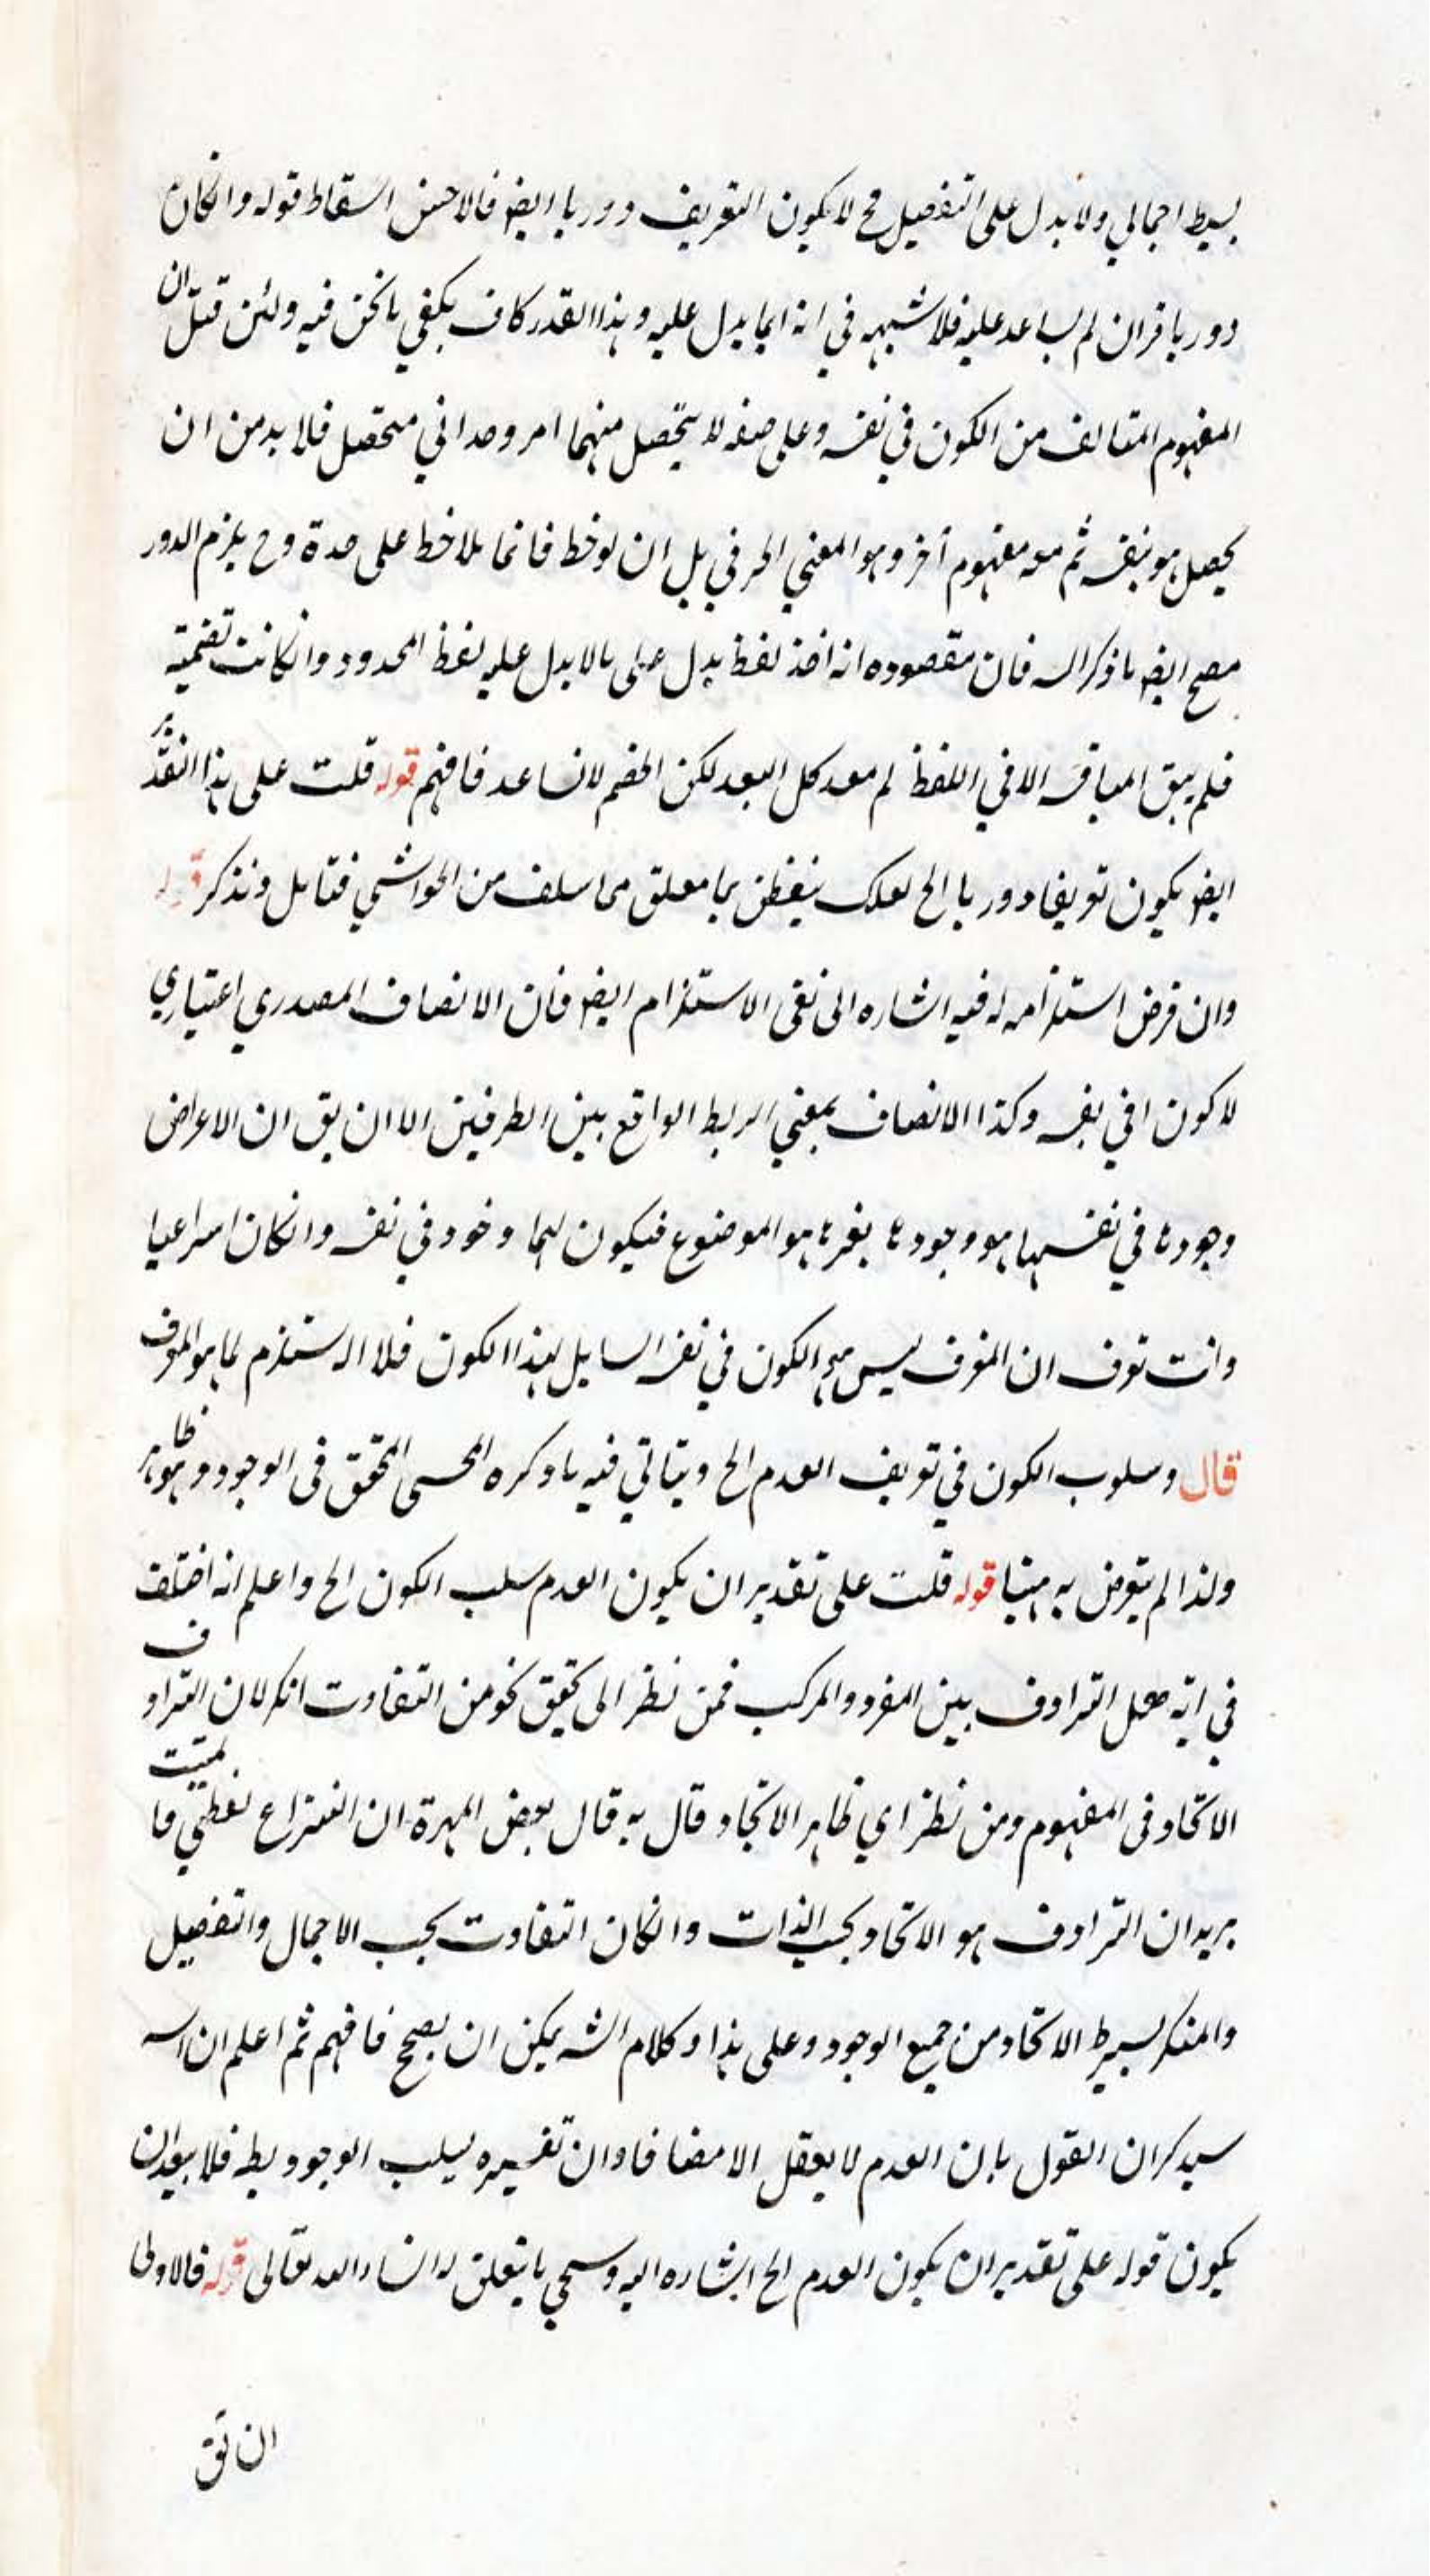 بسيط اجمالي ولا يدل على التفصيل فح لا يكون التعريف دوريا ايضا فالاحسن اسقاط قوله وانكان
دوريا فان لم يساعد عليه فلا شبهه في انه انما يدل عليه وهذا القدر كاف يكفي مانحن فيه ولئن قيل ان
المفهوم المتالف من الكون في نفسه وعلى صفه لا يتحصل منهما امر وحداني متحصل فلا بد من ان
يحصل هو بنفسه ثم معه مفهوم آخر وهو المعنى الحرفي بل ان لوحظ فانما يلاحظ على حدة وح يلزم الدور
ايضا ما ذكر فان مقصوده انه اخذ لفظ يدل على ما لا يدل عليه لفظ المحدود وانكانت تضمنيه
فلم يبق الا في اللفظ لم يبعد كل البعد لكن الخصم لا يساعد فافهم قوله قلت على هذا التقدير
ايضا يكون تعريفا دوريا الخ لعلك تتفطن بما يتعلق مما سلف من الحواشي فتامل وتذكر قوله
وان فرض استلزامه له فيه اشاره الى نفى الاستلزام ايضا فان الاتصاف المصدري اعتباري
لا كون له في نفسه وكذا الاتصاف بمعنى الربط الواقع بين الطرفين الا ان يق ان الاعراض
وجودها في نفسها هو وجودها لغيرها هو الموضوع فيكون لهما وجود في نفسه وانكان
وانت تعرف ان المعرف ليس هو الكون في نفسه الشامل لهذا الكون فلا استلزم لما هو المعرف
قال وسلوب الكون في تعريف العدم الخ ويتاتي فيه ما ذكره المحشي المحقق فى الوجود وهو ظاهر
ولذا لم يتعرض به هنا قوله قلت على تقدير ان يكون العدم سلب الكون الخ واعلم انه اختلف
في انه هل الترادف بين المفرد والمركب فمن نظر الى تحقيق نحو من التفاوت انكر لان الترادف
الاتحاد فى المفهوم ومن نظر اي ظاهر الاتحاد قال به قال بعض المهرة ان النزاع لفظي فالمثبت
يريد ان الترادف هو الاتحاد بحسب الذات وانكان التفاوت بحسب الاجمال والتفصيل
والمنكر يريد الاتحاد من جميع الوجوه وعلى هذا وكلام الشه يمكن ان يصح فافهم ثم اعلم ان
سيذكر ان القول بان العدم لا يعقل الا مضافا وان تفسيره بسلب الوجود فلا يبعد ان
يكون قوله على تقدير ان يكون العدم الخ اشاره اليه وسيجي ما يتعلق به انشاء الله تعالى قوله فالاولى
ان يق